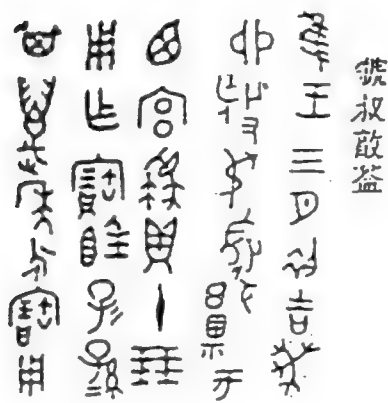 叔敦蓋
隹王三月初吉癸
卯叔于
西宮貝十朋
用作寶子孫
其萬年永寶用